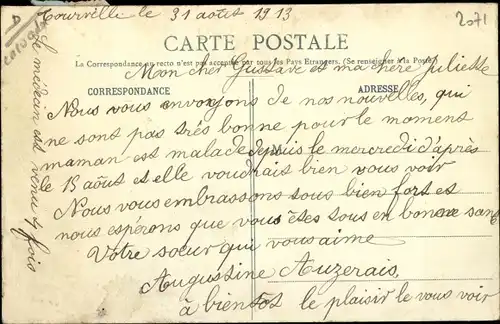 Tourville le 31 août 1913
2071
CARTE POSTALE
La Correspondance au recto n'est pas acceptée par tous les Pays Etrangers. (Se renseigner à la Poste)
Mon cher Gustave et ma chère Juliette
CORRESPONDANCE
ADRESSE
Nous vous envoyons de nos nouvelles, qui
ne sont pas très bonne pour le moment
maman est malade depuis le mercredi d'après
le 15 août et elle voudrais bien vous voir
Nous vous embrassons tous bien fort et
nous espérons que vous êtes tous en bonne santé
Votre sœur qui vous aime
Augustine Auzerais,
à bientôt le plaisir de vous voir
Le médecin est venu 4 fois
D
calvados